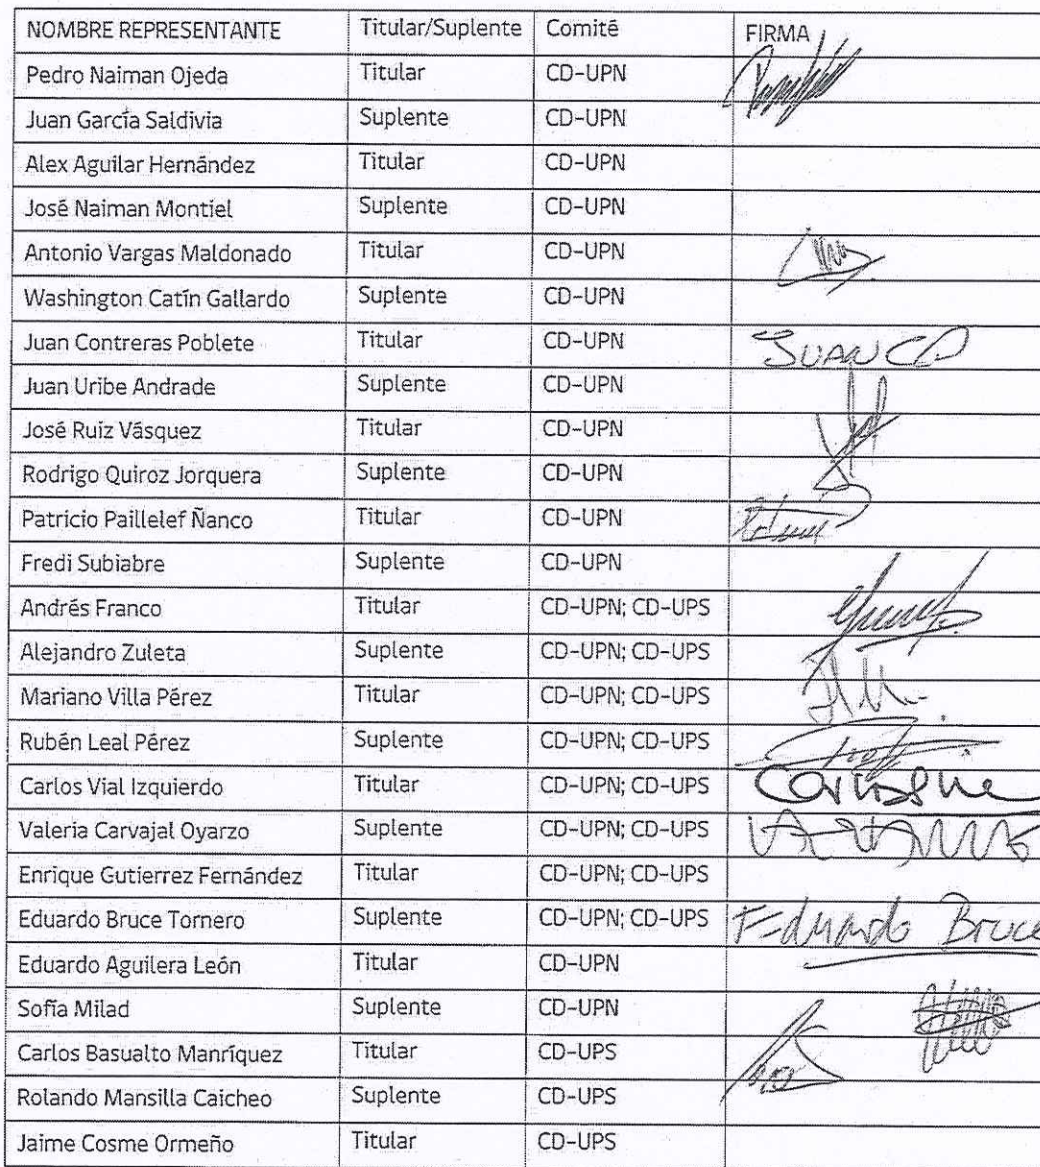 NOMBRE REPRESENTANTE Titular/Suplente Comité FIRMA
Pedro Naiman Ojeda Titular CD-UPN
Juan García Saldivia Suplente CD-UPN
Alex Aguilar Hernández Titular CD-UPN
José Naiman Montiel Suplente CD-UPN
Antonio Vargas Maldonado Titular CD-UPN
Washington Catín Gallardo Suplente CD-UPN
Juan Contreras Poblete Titular CD-UPN JUAN CP
Juan Uribe Andrade Suplente CD-UPN
José Ruiz Vásquez Titular CD-UPN
Rodrigo Quiroz Jorquera Suplente CD-UPN
Patricio Paillelef Ñanco Titular CD-UPN
Fredi Subiabre Suplente CD-UPN
Andrés Franco Titular CD-UPN; CD-UPS
Alejandro Zuleta Suplente CD-UPN; CD-UPS
Mariano Villa Pérez Titular CD-UPN; CD-UPS
Rubén Leal Pérez Suplente CD-UPN; CD-UPS
Carlos Vial Izquierdo Titular CD-UPN; CD-UPS
Valeria Carvajal Oyarzo Suplente CD-UPN; CD-UPS
Enrique Gutierrez Fernández Titular CD-UPN; CD-UPS
Eduardo Bruce Tornero Suplente CD-UPN; CD-UPS Eduardo Bruce
Eduardo Aguilera León Titular CD-UPN
Sofía Milad Suplente CD-UPN
Carlos Basualto Manríquez Titular CD-UPS
Rolando Mansilla Caicheo Suplente CD-UPS
Jaime Cosme Ormeño Titular CD-UPS